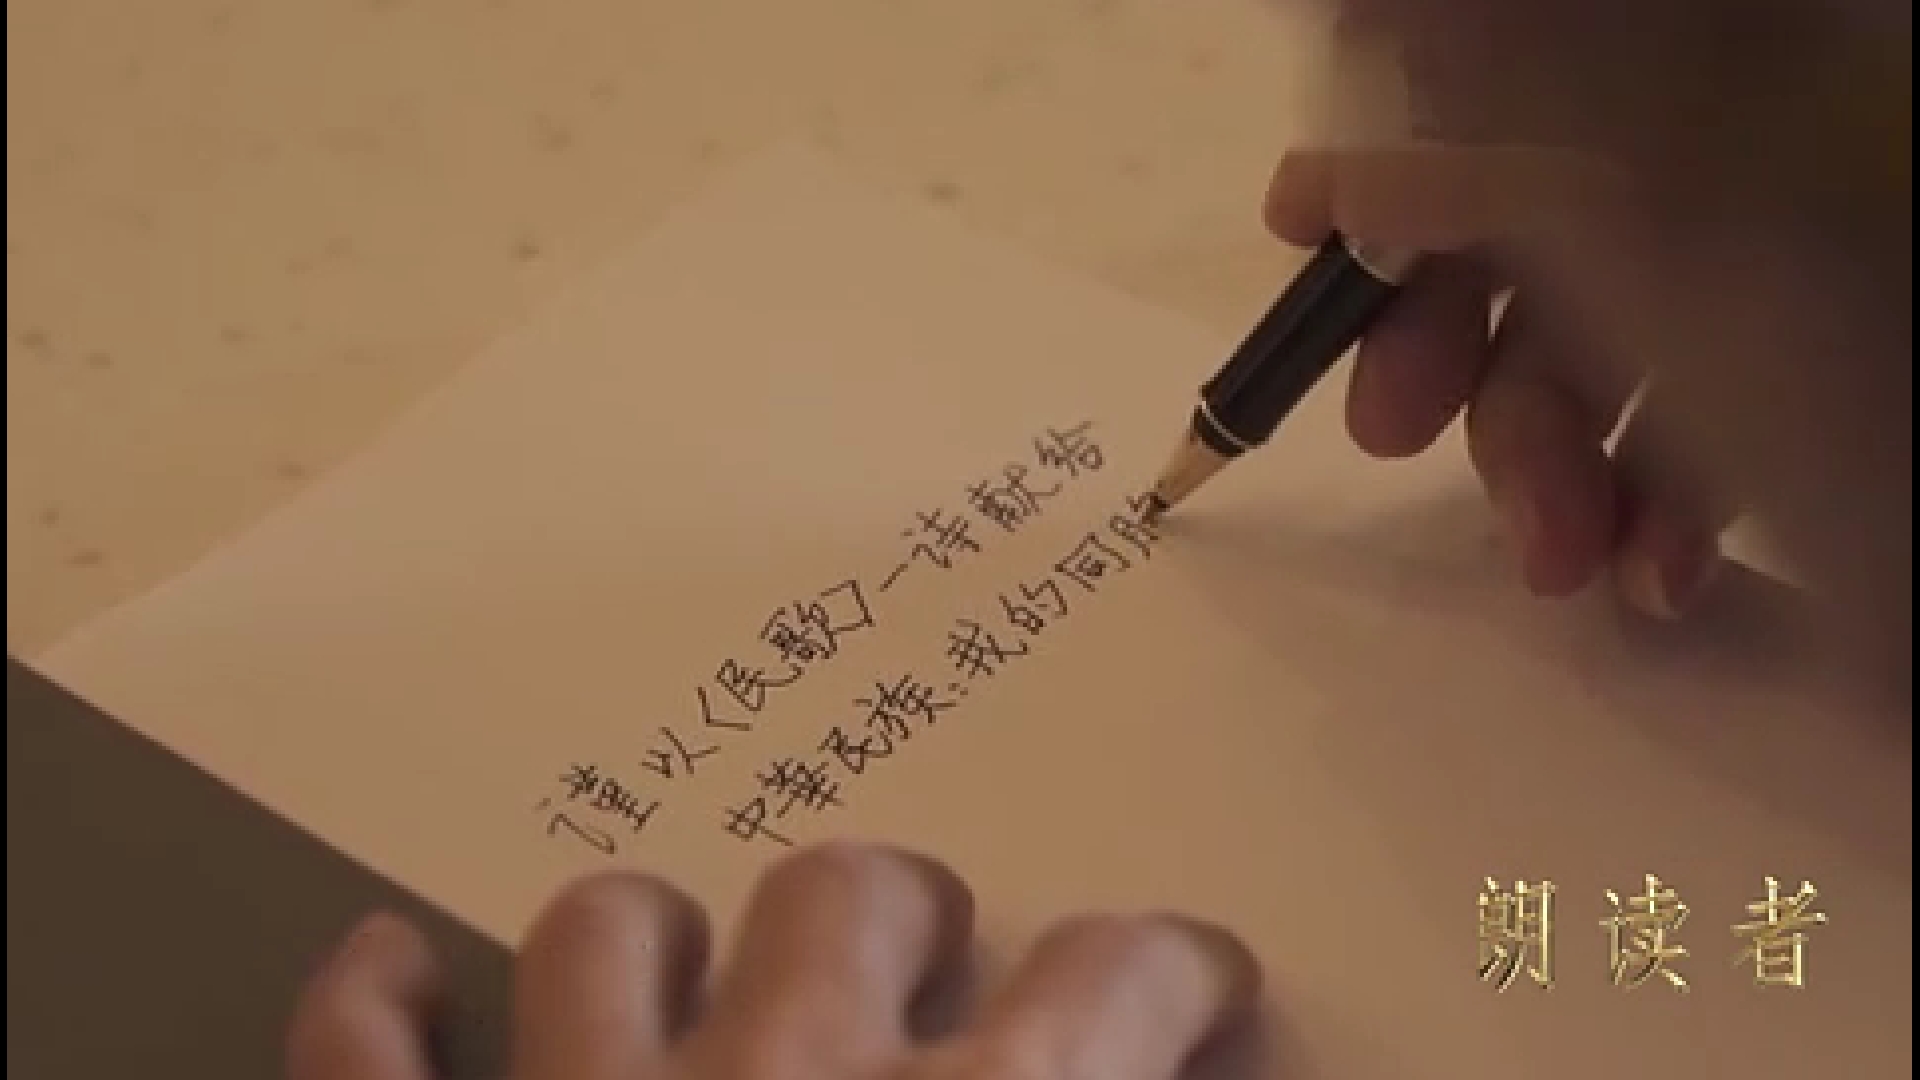 谨以〈民歌〉一诗献给
中华民族：我的同胞
朗读者